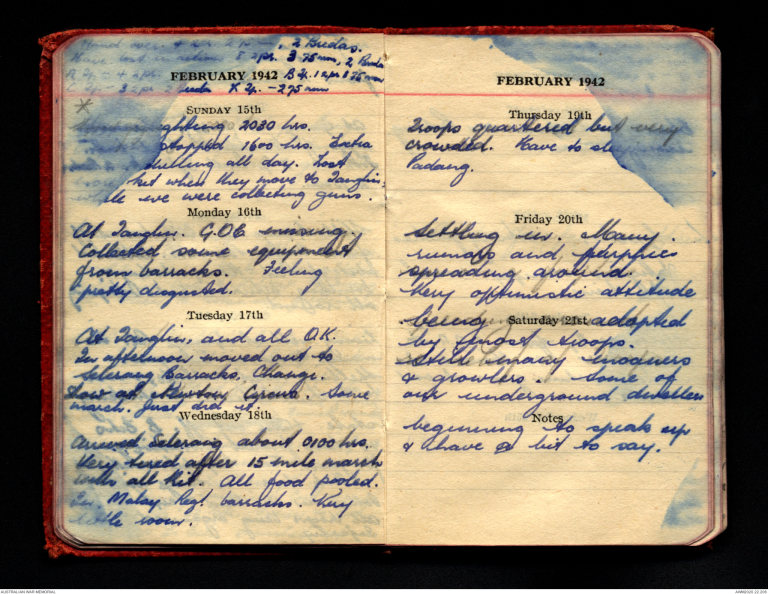 2 Bredas.
2 pr. 3 75mm, 2 Breda
FEBRUARY 1942 B Tp. 1 2pr 1 75mm
3 2pr 2 Breda K Tp. - 2 75mm
SUNDAY 15th
fighting 2030 hrs.
stopped 1600 hrs. Extra
shelling all day. Lost
kit when they move to Tanglin,
we were collecting guns.
Monday 16th
At Tanglin. G.O.C. missing.
Collected some equipment
from barracks. Feeling
pretty disgusted.
Tuesday 17th
At Tanglin, and all O.K.
In afternoon moved out to
Selerang Barracks, Changi.
Saw at Newton Circus. Some
march. Just did it.
Wednesday 18th
Arrived Selerang about 0100 hrs.
Very tired after 15 mile march
with all kit. All food pooled.
In Malay Regt barracks. Very
little room.
FEBRUARY 1942
Thursday 19th
Troops quartered but very
crowded. Have to
Padang.
Friday 20th
Settling in. Many
rumors and furphies
spreading around.
Very optimistic attitude
being Saturday 21st adopted
by most troops.
Still many moaners
& growlers. Some of
our underground dwellers
Notes
beginning to speak up
& have a bit to say.
AUSTRALIAN WAR MEMORIAL